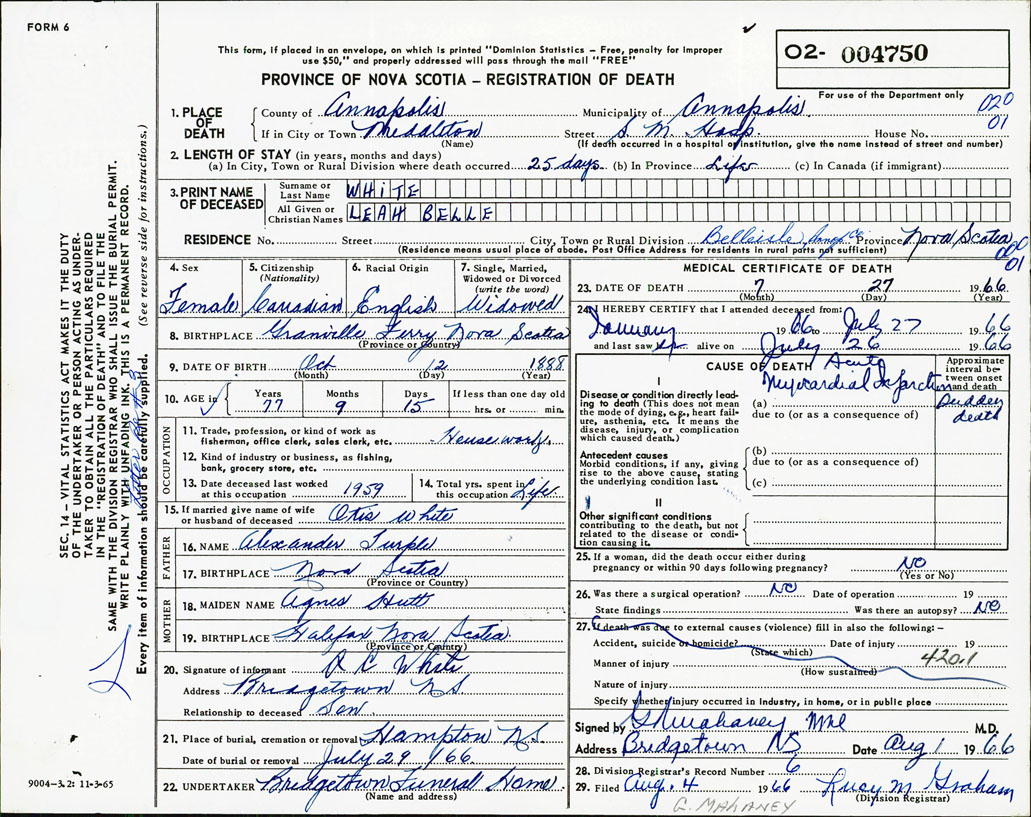 FORM 6
This form, if placed in an envelope, on which is printed "Dominion Statistics – Free, penalty for improper
use $50," and properly addressed will pass through the mail "FREE"
PROVINCE OF NOVA SCOTIA – REGISTRATION OF DEATH
02- 004750
For use of the Department only
020
01
1. PLACE OF DEATH
County of Annapolis Municipality of Annapolis
If in City or Town Middleton Street S. M. Hosp. House No.
(Name) (If death occurred in a hospital or institution, give the name instead of street and number)
2. LENGTH OF STAY (in years, months and days)
(a) In City, Town or Rural Division where death occurred 25 days (b) In Province Life (c) In Canada (if immigrant)
3. PRINT NAME OF DECEASED
Surname or Last Name WHITE
All Given or Christian Names LEAH BELLE
RESIDENCE No. Street City, Town or Rural Division Belleisle Anna Co Province Nova Scotia
(Residence means usual place of abode. Post Office Address for residents in rural parts not sufficient)
020
01
4. Sex Female
5. Citizenship (Nationality) Canadian
6. Racial Origin English
7. Single, Married, Widowed or Divorced (write the word) Widowed
8. BIRTHPLACE Granville Ferry Nova Scotia
(Province or Country)
9. DATE OF BIRTH Oct 12 1888
(Month) (Day) (Year)
10. AGE in Years 77 Months 9 Days 15 If less than one day old hrs. or min.
OCCUPATION
11. Trade, profession, or kind of work as
fisherman, office clerk, sales clerk, etc. Housework
12. Kind of industry or business, as fishing,
bank, grocery store, etc.
13. Date deceased last worked at this occupation 1959
14. Total yrs. spent in this occupation Life
15. If married give name of wife or husband of deceased Otis White
FATHER
16. NAME Alexander Turple
17. BIRTHPLACE Nova Scotia
(Province or Country)
MOTHER
18. MAIDEN NAME Agnes Hutt
19. BIRTHPLACE Halifax Nova Scotia
(Province or Country)
20. Signature of informant R C White
Address Bridgetown N S
Relationship to deceased Son
21. Place of burial, cremation or removal Hampton N S.
Date of burial or removal July 29/66
22. UNDERTAKER Bridgetown Funeral Home
(Name and address)
MEDICAL CERTIFICATE OF DEATH
23. DATE OF DEATH 7 27 1966
(Month) (Day) (Year)
24. I HEREBY CERTIFY that I attended deceased from:
January 1966 to July 27 1966
and last saw alive on July 26 1966
CAUSE OF DEATH
Approximate interval between onset and death
I
Disease or condition directly leading to death (This does not mean
the mode of dying, e.g., heart failure, asthenia, etc. It means the
disease, injury, or complication
which caused death.)
Acute
Myocardial Infarction
(a) Sudden death
due to (or as a consequence of)
Antecedent causes
Morbid conditions, if any, giving
rise to the above cause, stating
the underlying condition last.
(b)
due to (or as a consequence of)
(c)
II
Other significant conditions
contributing to the death, but not
related to the disease or condition causing it.
25. If a woman, did the death occur either during
pregnancy or within 90 days following pregnancy? NO
(Yes or No)
26. Was there a surgical operation? NO Date of operation 19
State findings Was there an autopsy? NO
27. If death was due to external causes (violence) fill in also the following: –
Accident, suicide or homicide? Date of injury 19
(State which)
420.1
Manner of injury
(How sustained)
Nature of injury
Specify whether injury occurred in Industry, in home, or in public place
Signed by G Mahaney M.D.
Address Bridgetown NS Date Aug 1 1966
28. Division Registrar's Record Number 6
29. Filed Aug. 4 1966 Lucy M Graham
(Division Registrar)
G. MAHANEY
SEC. 14 – VITAL STATISTICS ACT MAKES IT THE DUTY
OF THE UNDERTAKER OR PERSON ACTING AS UNDER-
TAKER TO OBTAIN ALL THE PARTICULARS REQUIRED
IN THE "REGISTRATION OF DEATH" AND TO FILE THE
SAME WITH THE DIVISION REGISTRAR WHO SHALL ISSUE THE BURIAL PERMIT.
WRITE PLAINLY WITH UNFADING INK. THIS IS A PERMANENT RECORD.
Every item of information should be carefully supplied. (See reverse side for instructions.)
9004-3.2: 11-3-65